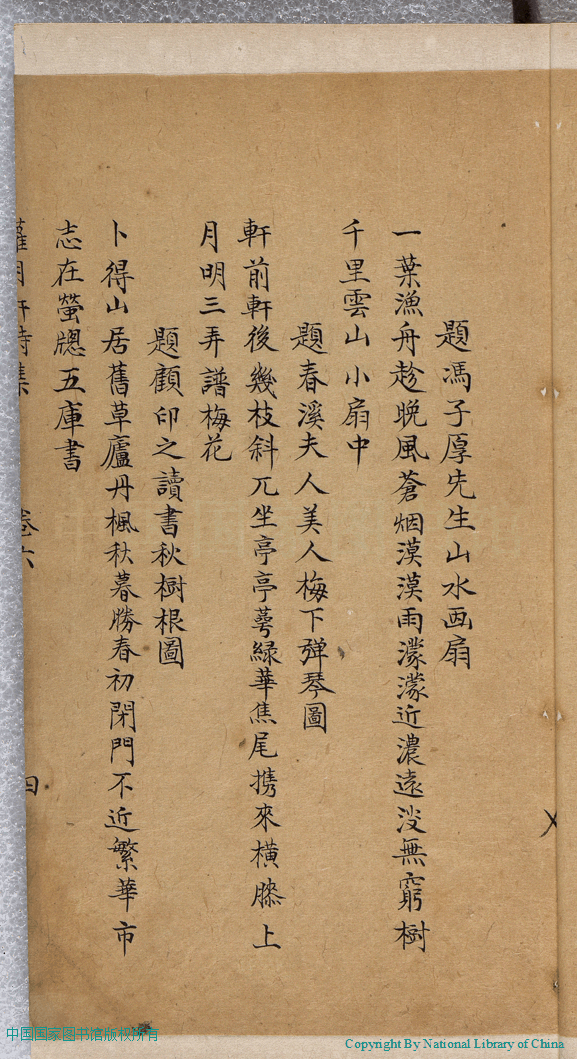 題馮子厚先生山水画扇
一葉漁舟趁晚風蒼烟漠漠雨濛濛近濃遠淡無窮樹
千里雲山小扇中
題春溪夫人美人梅下弹琴圖
軒前軒後幾枝斜兀坐亭亭萼緑華焦尾携來橫膝上
月明三弄譜梅花
題顧印之讀書秋樹根圖
卜得山居舊草廬丹楓秋暮勝春初閉門不近繁華市
志在螢牕五庫書
卷六
四
中国国家图书馆版权所有
Copyright By National Library of China